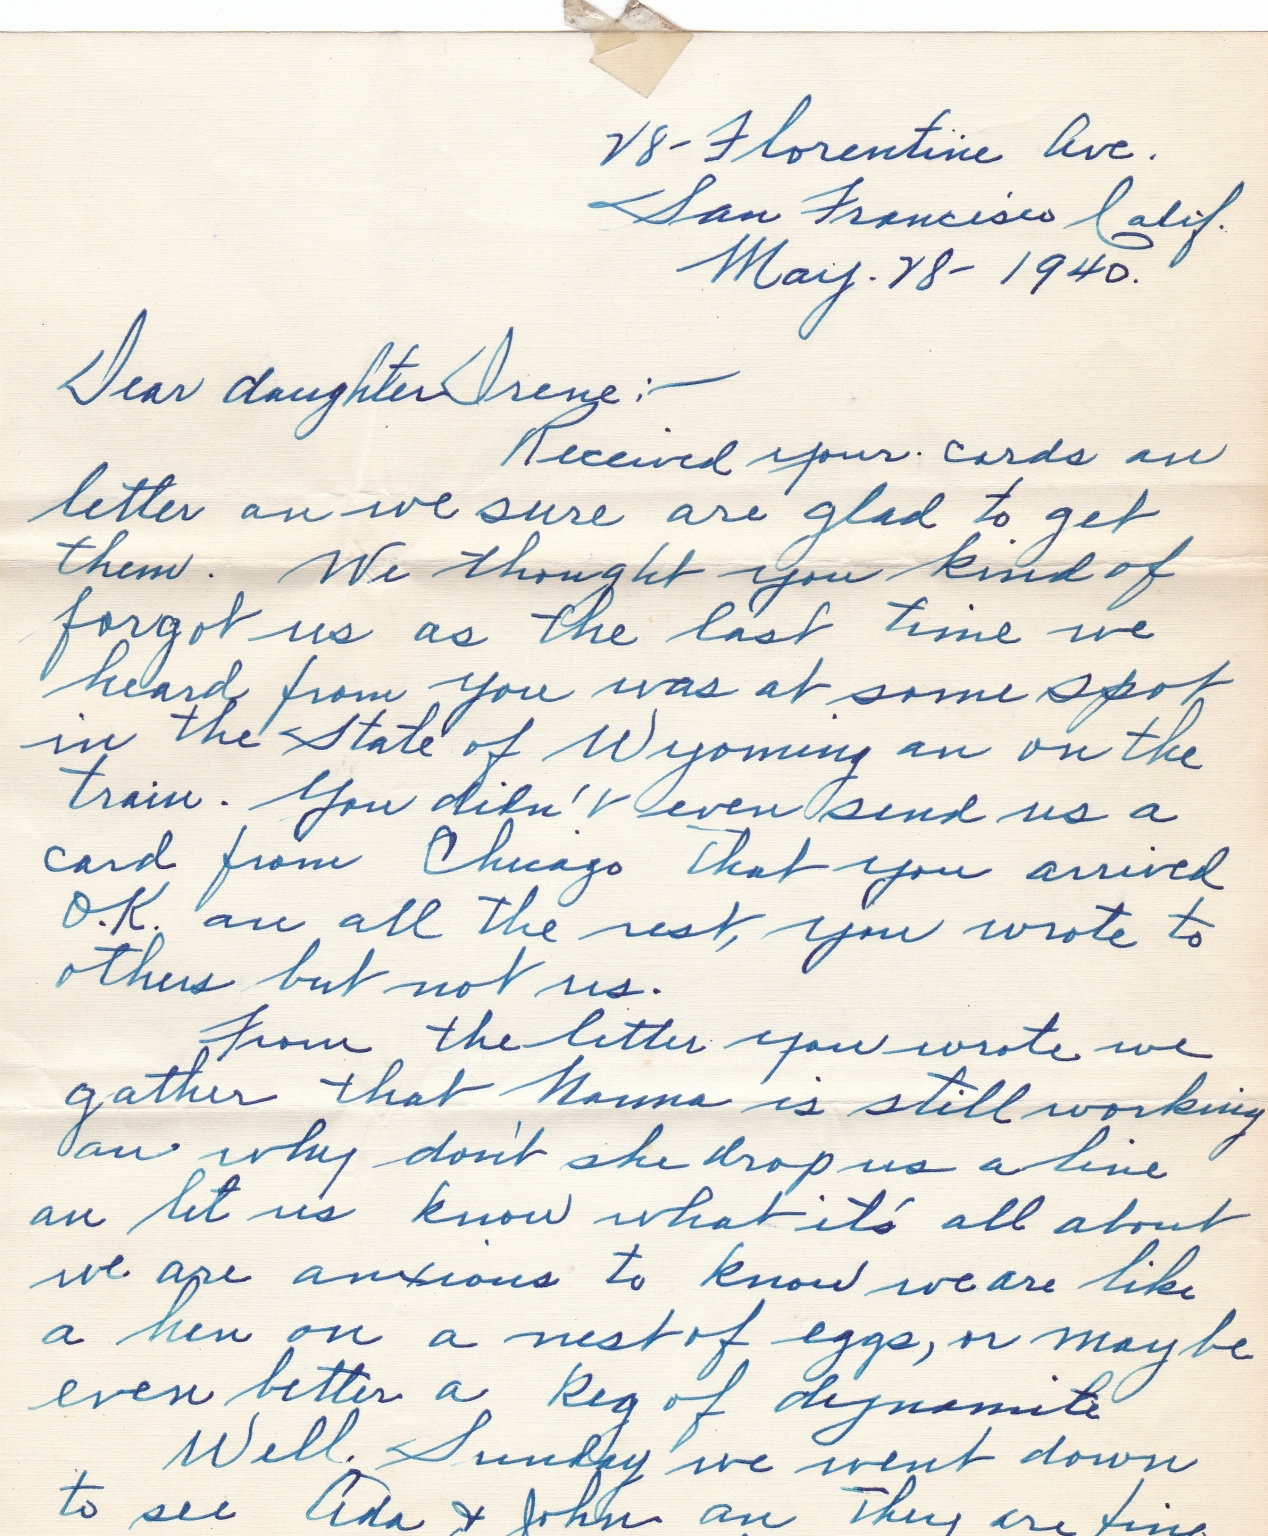 28- Florentine Ave.
San Francisco Calif.
May. 28- 1940.
Dear daughter Irene:-
Received your cards an
letter an we sure are glad to get
them. We thought you kind of
forgot us as the last time we
heard from you was at some spot
in the State of Wyoming an on the
train. You didn't even send us a
card from Chicago that you arrived
O.K. an all the rest, you wrote to
others but not us.
From the letter you wrote we
gather that Nanna is still working
an why don't she drop us a line
an let us know what it's all about
we are anxious to know we are like
a hen on a nest of eggs, or maybe
even better a keg of dynamite
Well. Sunday we went down
to see Ada & John an they are fine